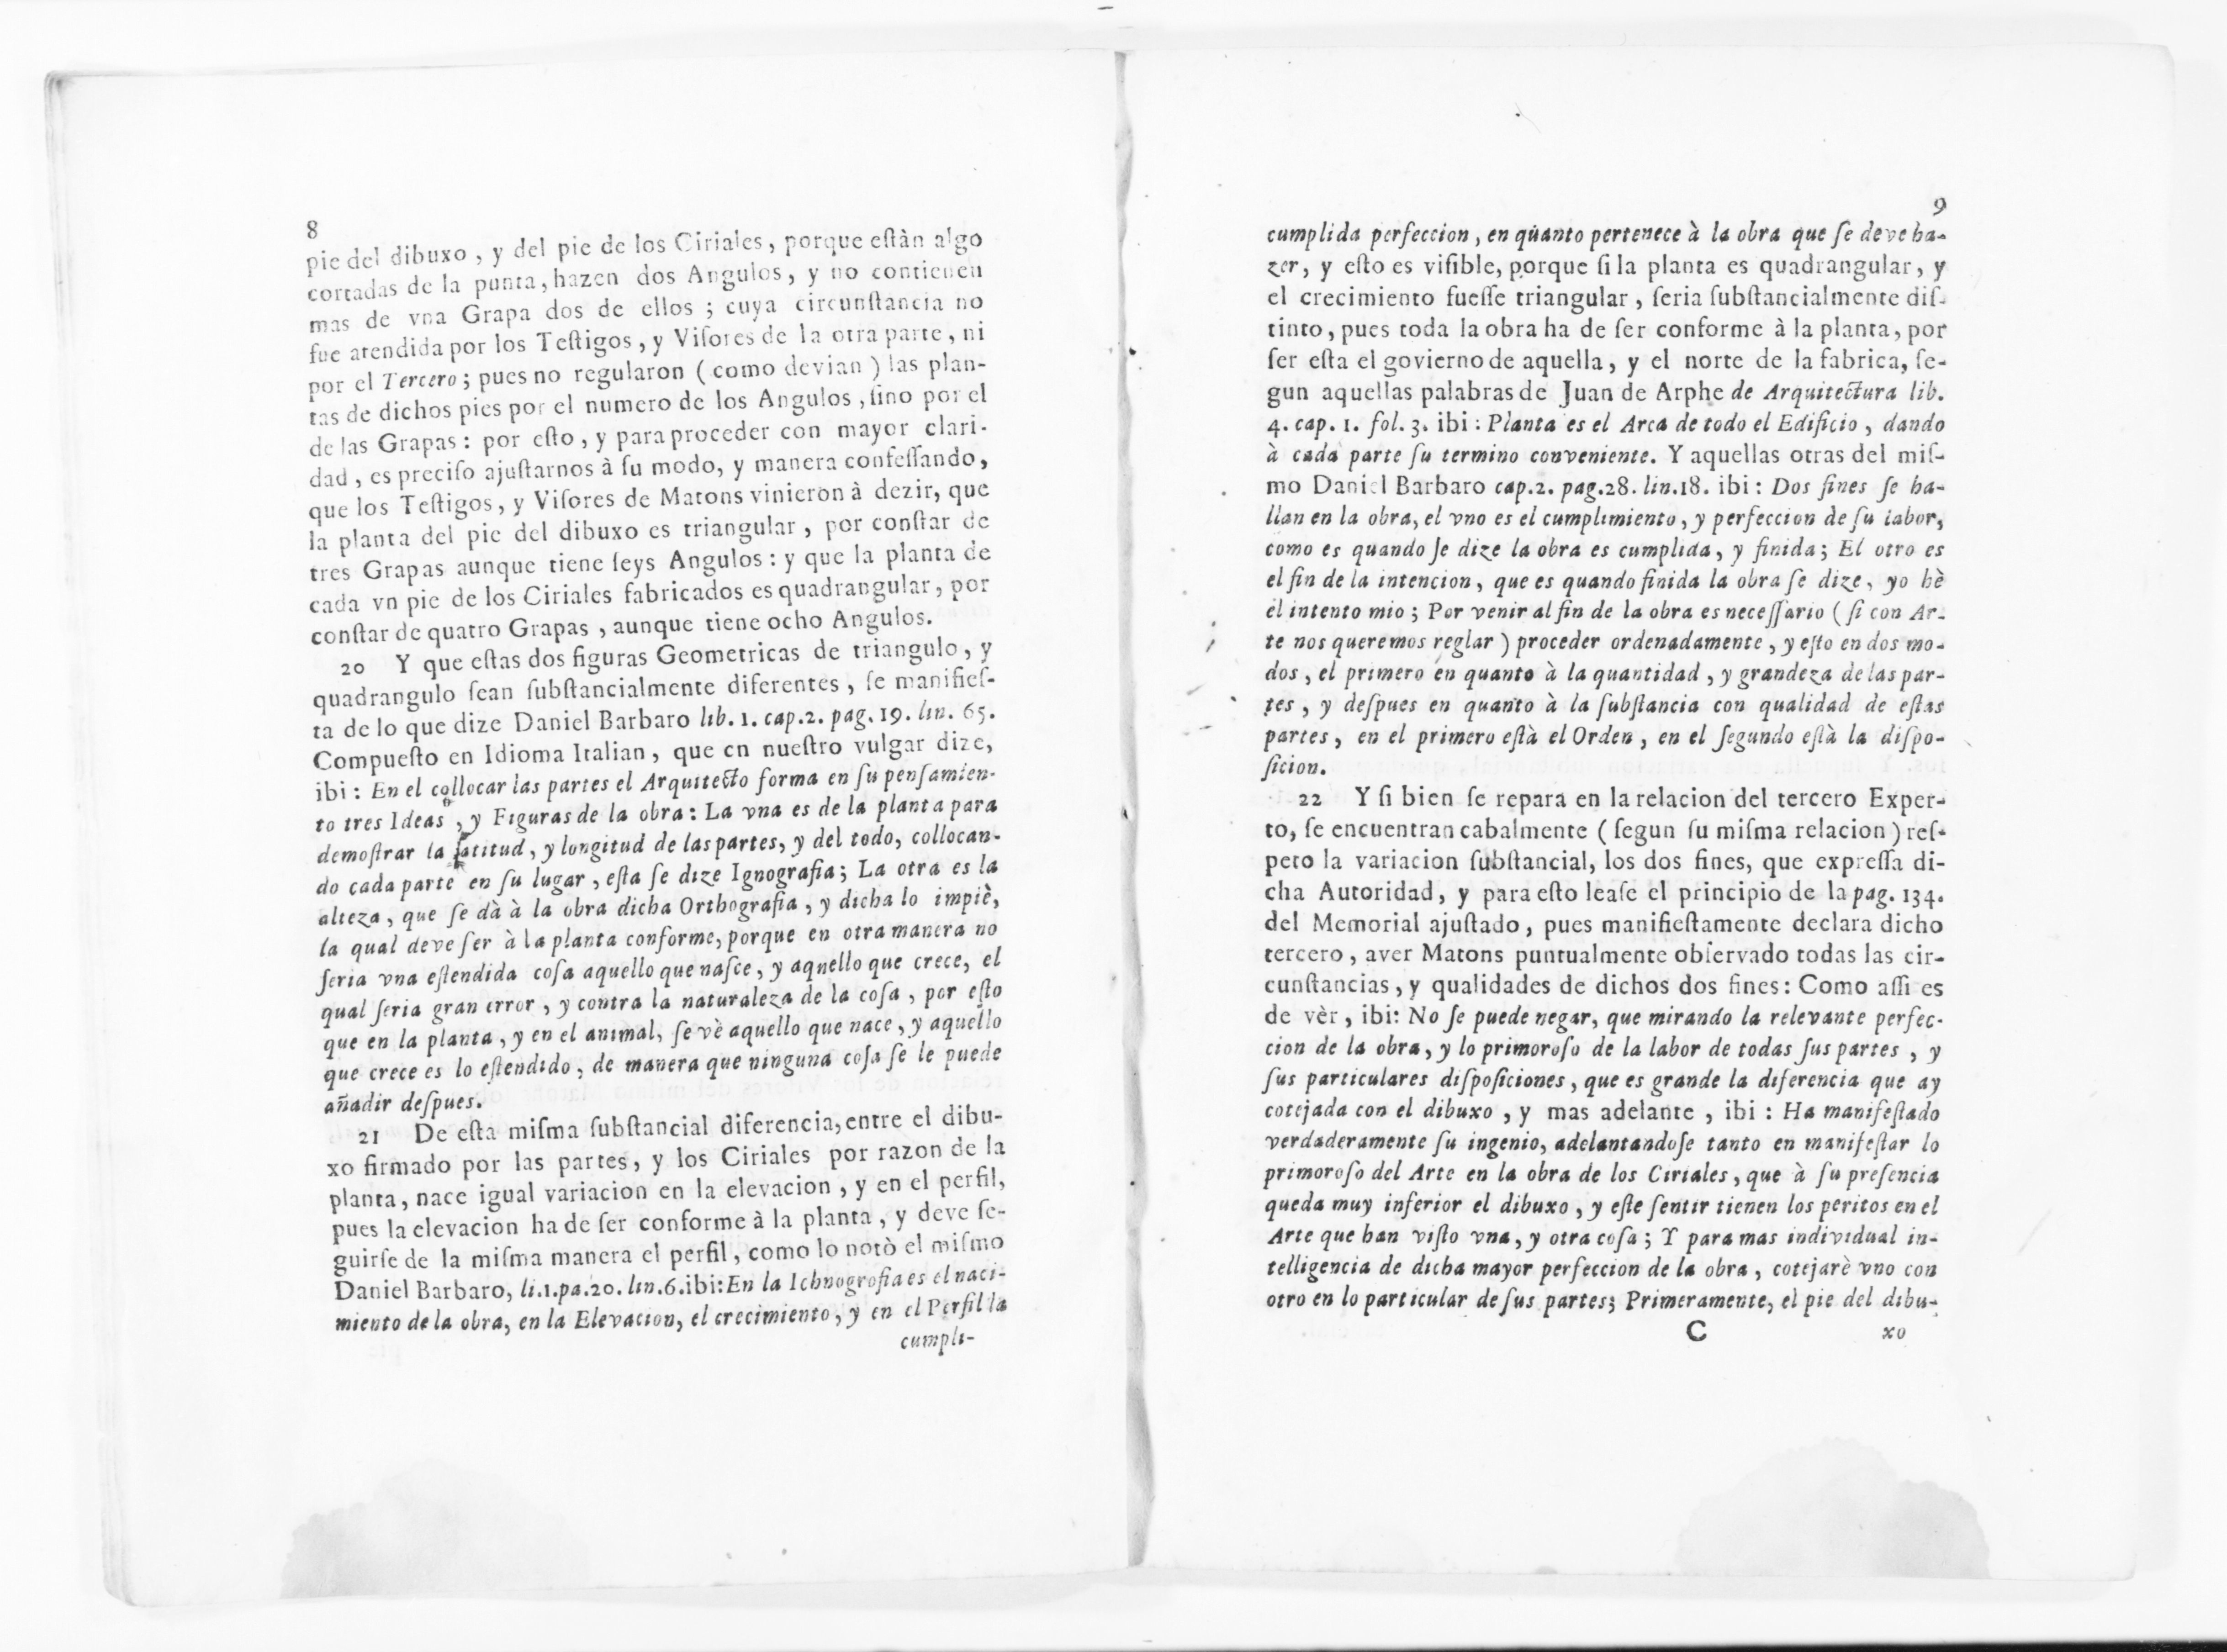 8
pie del dibuxo, y del pie de los Ciriales, porque eſtàn algo
cortadas de la punta, hazen dos Angulos, y no contienen
mas de vna Grapa dos de ellos; cuya circunſtancia no
fue atendida por los Teſtigos, y Viſores de la otra parte, ni
por el Tercero; pues no regularon (como devian) las plan-
tas de dichos pies por el numero de los Angulos, ſino por el
de las Grapas: por eſto, y para proceder con mayor clari-
dad, es preciſo ajuſtarnos à ſu modo, y manera confeſſando,
que los Teſtigos, y Viſores de Matons vinieron à dezir, que
la planta del pie del dibuxo es triangular, por conſtar de
tres Grapas aunque tiene ſeys Angulos: y que la planta de
cada vn pie de los Ciriales fabricados es quadrangular, por
conſtar de quatro Grapas, aunque tiene ocho Angulos.
20 Y que eſtas dos figuras Geometricas de triangulo, y
quadrangulo ſean ſubſtancialmente diferentes, ſe manifieſ-
ta de lo que dize Daniel Barbaro lib. 1. cap.2. pag. 19. lin. 65.
Compueſto en Idioma Italian, que en nueſtro vulgar dize,
ibi: En el collocar las partes el Arquitecto forma en ſu penſamien-
to tres Ideas, y Figuras de la obra: La vna es de la planta para
demoſtrar la latitud, y longitud de las partes, y del todo, collocan-
do cada parte en ſu lugar, eſta ſe dize Ignografia; La otra es la
alteza, que ſe dà à la obra dicha Orthografia, y dicha lo impiè,
la qual deve ſer à la planta conforme, porque en otra manera no
ſeria vna eſtendida coſa aquello que naſce, y aqnello que crece, el
qual ſeria gran error, y contra la naturaleza de la coſa, por eſto
que en la planta, y en el animal, ſe vè aquello que nace, y aquello
que crece es lo eſtendido, de manera que ninguna coſa ſe le puede
añadir deſpues.
21 De eſta miſma ſubſtancial diferencia, entre el dibu-
xo firmado por las partes, y los Ciriales por razon de la
planta, nace igual variacion en la elevacion, y en el perfil,
pues la elevacion ha de ſer conforme à la planta, y deve ſe-
guirſe de la miſma manera el perfil, como lo notò el miſmo
Daniel Barbaro, li.1.pa.20. lin.6.ibi: En la Ichnogrofia es el naci-
miento de la obra, en la Elevacion, el crecimiento, y en el Perfil la
cumpli-
9
cumplida perfeccion, en quanto pertenece à la obra que ſe deve ha-
zer, y eſto es viſible, porque ſi la planta es quadrangular, y
el crecimiento fueſſe triangular, ſeria ſubſtancialmente diſ-
tinto, pues toda la obra ha de ſer conforme à la planta, por
ſer eſta el govierno de aquella, y el norte de la fabrica, ſe-
gun aquellas palabras de Juan de Arphe de Arquitectura lib.
4. cap. 1. fol. 3. ibi: Planta es el Arca de todo el Edificio, dando
à cada parte ſu termino conveniente. Y aquellas otras del miſ-
mo Daniel Barbaro cap.2. pag.28. lin.18. ibi: Dos fines ſe ha-
llan en la obra, el vno es el cumplimiento, y perfeccion de ſu labor,
como es quando ſe dize la obra es cumplida, y finida; El otro es
el fin de la intencion, que es quando finida la obra ſe dize, yo hè
el intento mio; Por venir al fin de la obra es neceſſario (ſi con Ar-
te nos queremos reglar) proceder ordenadamente, y eſto en dos mo-
dos, el primero en quanto à la quantidad, y grandeza de las par-
tes, y deſpues en quanto à la ſubſtancia con qualidad de eſtas
partes, en el primero eſtà el Orden, en el ſegundo eſtà la diſpo-
ſicion.
22 Y ſi bien ſe repara en la relacion del tercero Exper-
to, ſe encuentran cabalmente (ſegun ſu miſma relacion) reſ-
peto la variacion ſubſtancial, los dos fines, que expreſſa di-
cha Autoridad, y para eſto leaſe el principio de la pag. 134.
del Memorial ajuſtado, pues manifieſtamente declara dicho
tercero, aver Matons puntualmente obſervado todas las cir-
cunſtancias, y qualidades de dichos dos fines: Como aſſi es
de vèr, ibi: No ſe puede negar, que mirando la relevante perfec-
cion de la obra, y lo primoroſo de la labor de todas ſus partes, y
ſus particulares diſpoſiciones, que es grande la diferencia que ay
cotejada con el dibuxo, y mas adelante, ibi: Ha manifeſtado
verdaderamente ſu ingenio, adelantandoſe tanto en manifeſtar lo
primoroſo del Arte en la obra de los Ciriales, que à ſu preſencia
queda muy inferior el dibuxo, y eſte ſentir tienen los peritos en el
Arte que han viſto vna, y otra coſa; Y para mas individual in-
telligencia de dicha mayor perfeccion de la obra, cotejarè vno con
otro en lo particular de ſus partes; Primeramente, el pie del dibu-
C xo